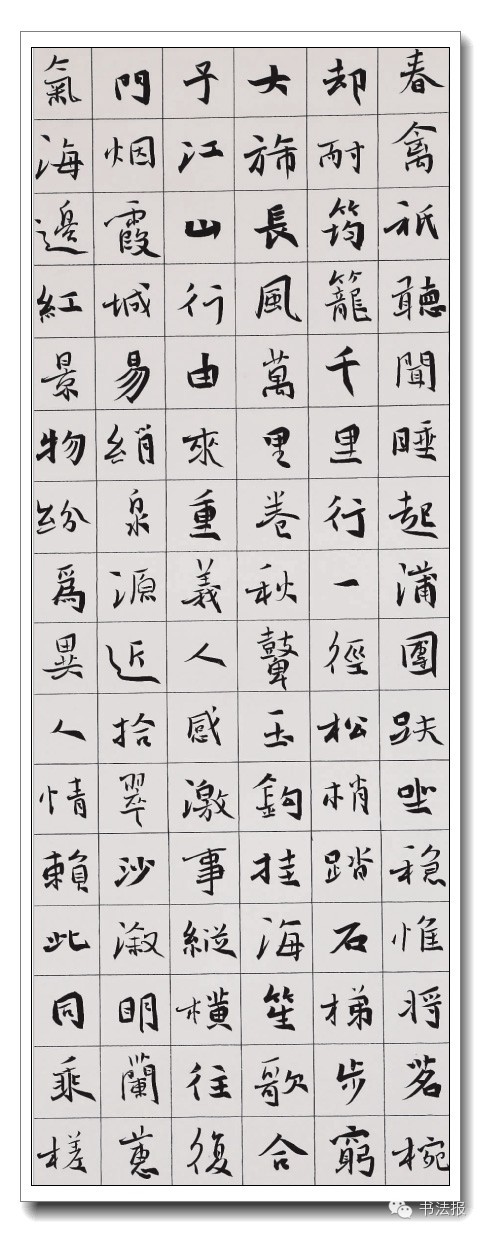 春禽祇聽聞睡起蒲團趺坐穩惟將茗椀
却耐筠籠千里行一徑松梢踏石梯步窮
大旆長風萬里卷秋鼙玉鉤挂海笙歌合
子江山行由來重義人感激事縱橫往復
門烟霞城易綃泉源近拾翠沙溆明蘭蕙
氣海邊紅景物紛為異人情賴此同乘槎
书法报